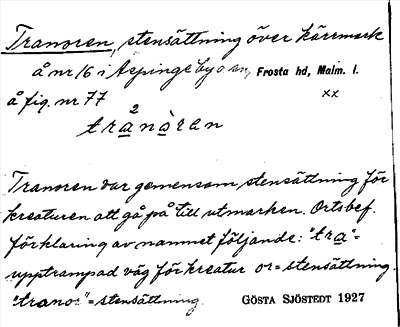 Tranoren, stensättning över kärrmark
å nr 16 i Äspinge by o sn, Frosta hd, Malm. l.
å fig. nr 77 xx
2
tranòran
Tranoren var gemensam stensättning för
kreaturen att gå på till utmarken. Ortsbef.
förklaring av namnet följande: "tra"=
upptrampad väg för kreatur or=stensättning.
"tranor"=stensättning.
GÖSTA SJÖSTEDT 1927